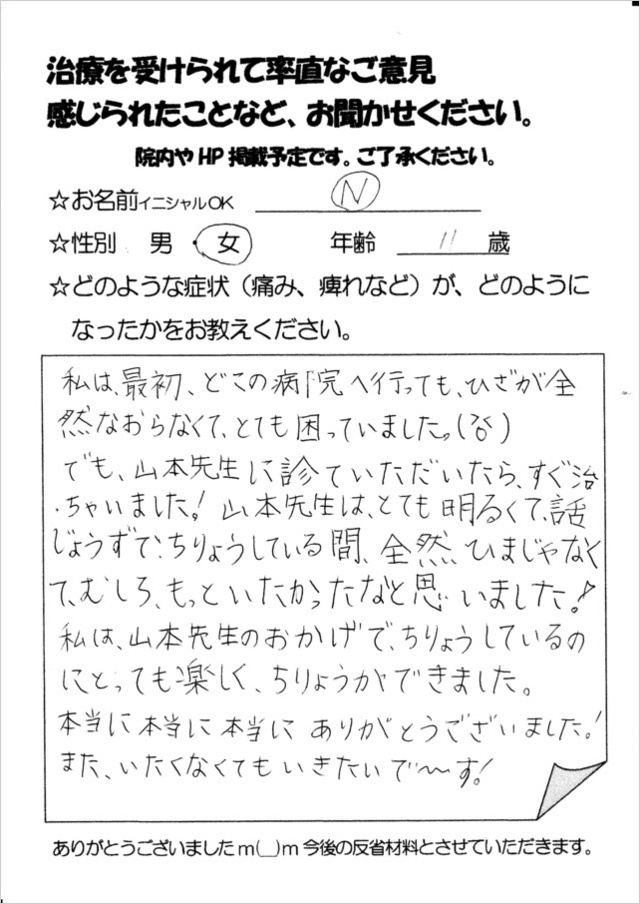 治療を受けられて率直なご意見
感じられたことなど、お聞かせください。
院内やHP掲載予定です。ご了承ください。
☆お名前イニシャルOK N
☆性別 男・女 年齢 11 歳
☆どのような症状（痛み、痺れなど）が、どのように
なったかをお教えください。
私は、最初、どこの病院へ行っても、ひざが全
然なおらなくて、とても困っていました。
でも、山本先生に診ていただいたら、すぐ治
ちゃいました！山本先生は、とても明るくて、話
じょうずで、ちりょうしている間、全然、ひまじゃなく
て、むしろ、もっといたかったなと思いました！
私は、山本先生のおかげで、ちりょうしているの
にとっても楽しく、ちりょうができました。
本当に本当に本当にありがとうございました！
また、いたくなくてもいきたいで〜す！
ありがとうございましたm(__)m今後の反省材料とさせていただきます。